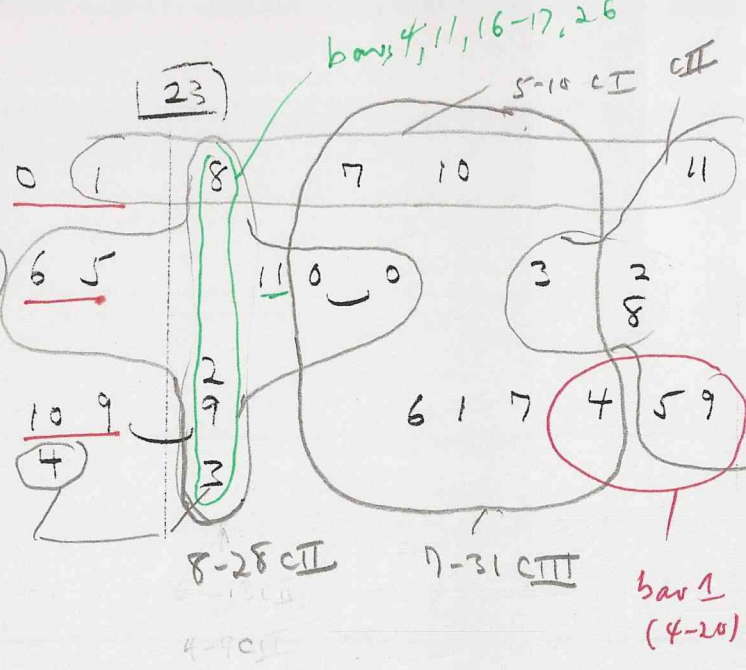 bars 4, 11, 16-17, 26
23
5-10 CI CII
0 1 8 7 10 11
6 5 11 0 0 3 2
8
2
10 9 9 6 1 7 4 5 9
4 3
8-28 CII 7-31 CIII
bar 1
(4-20)